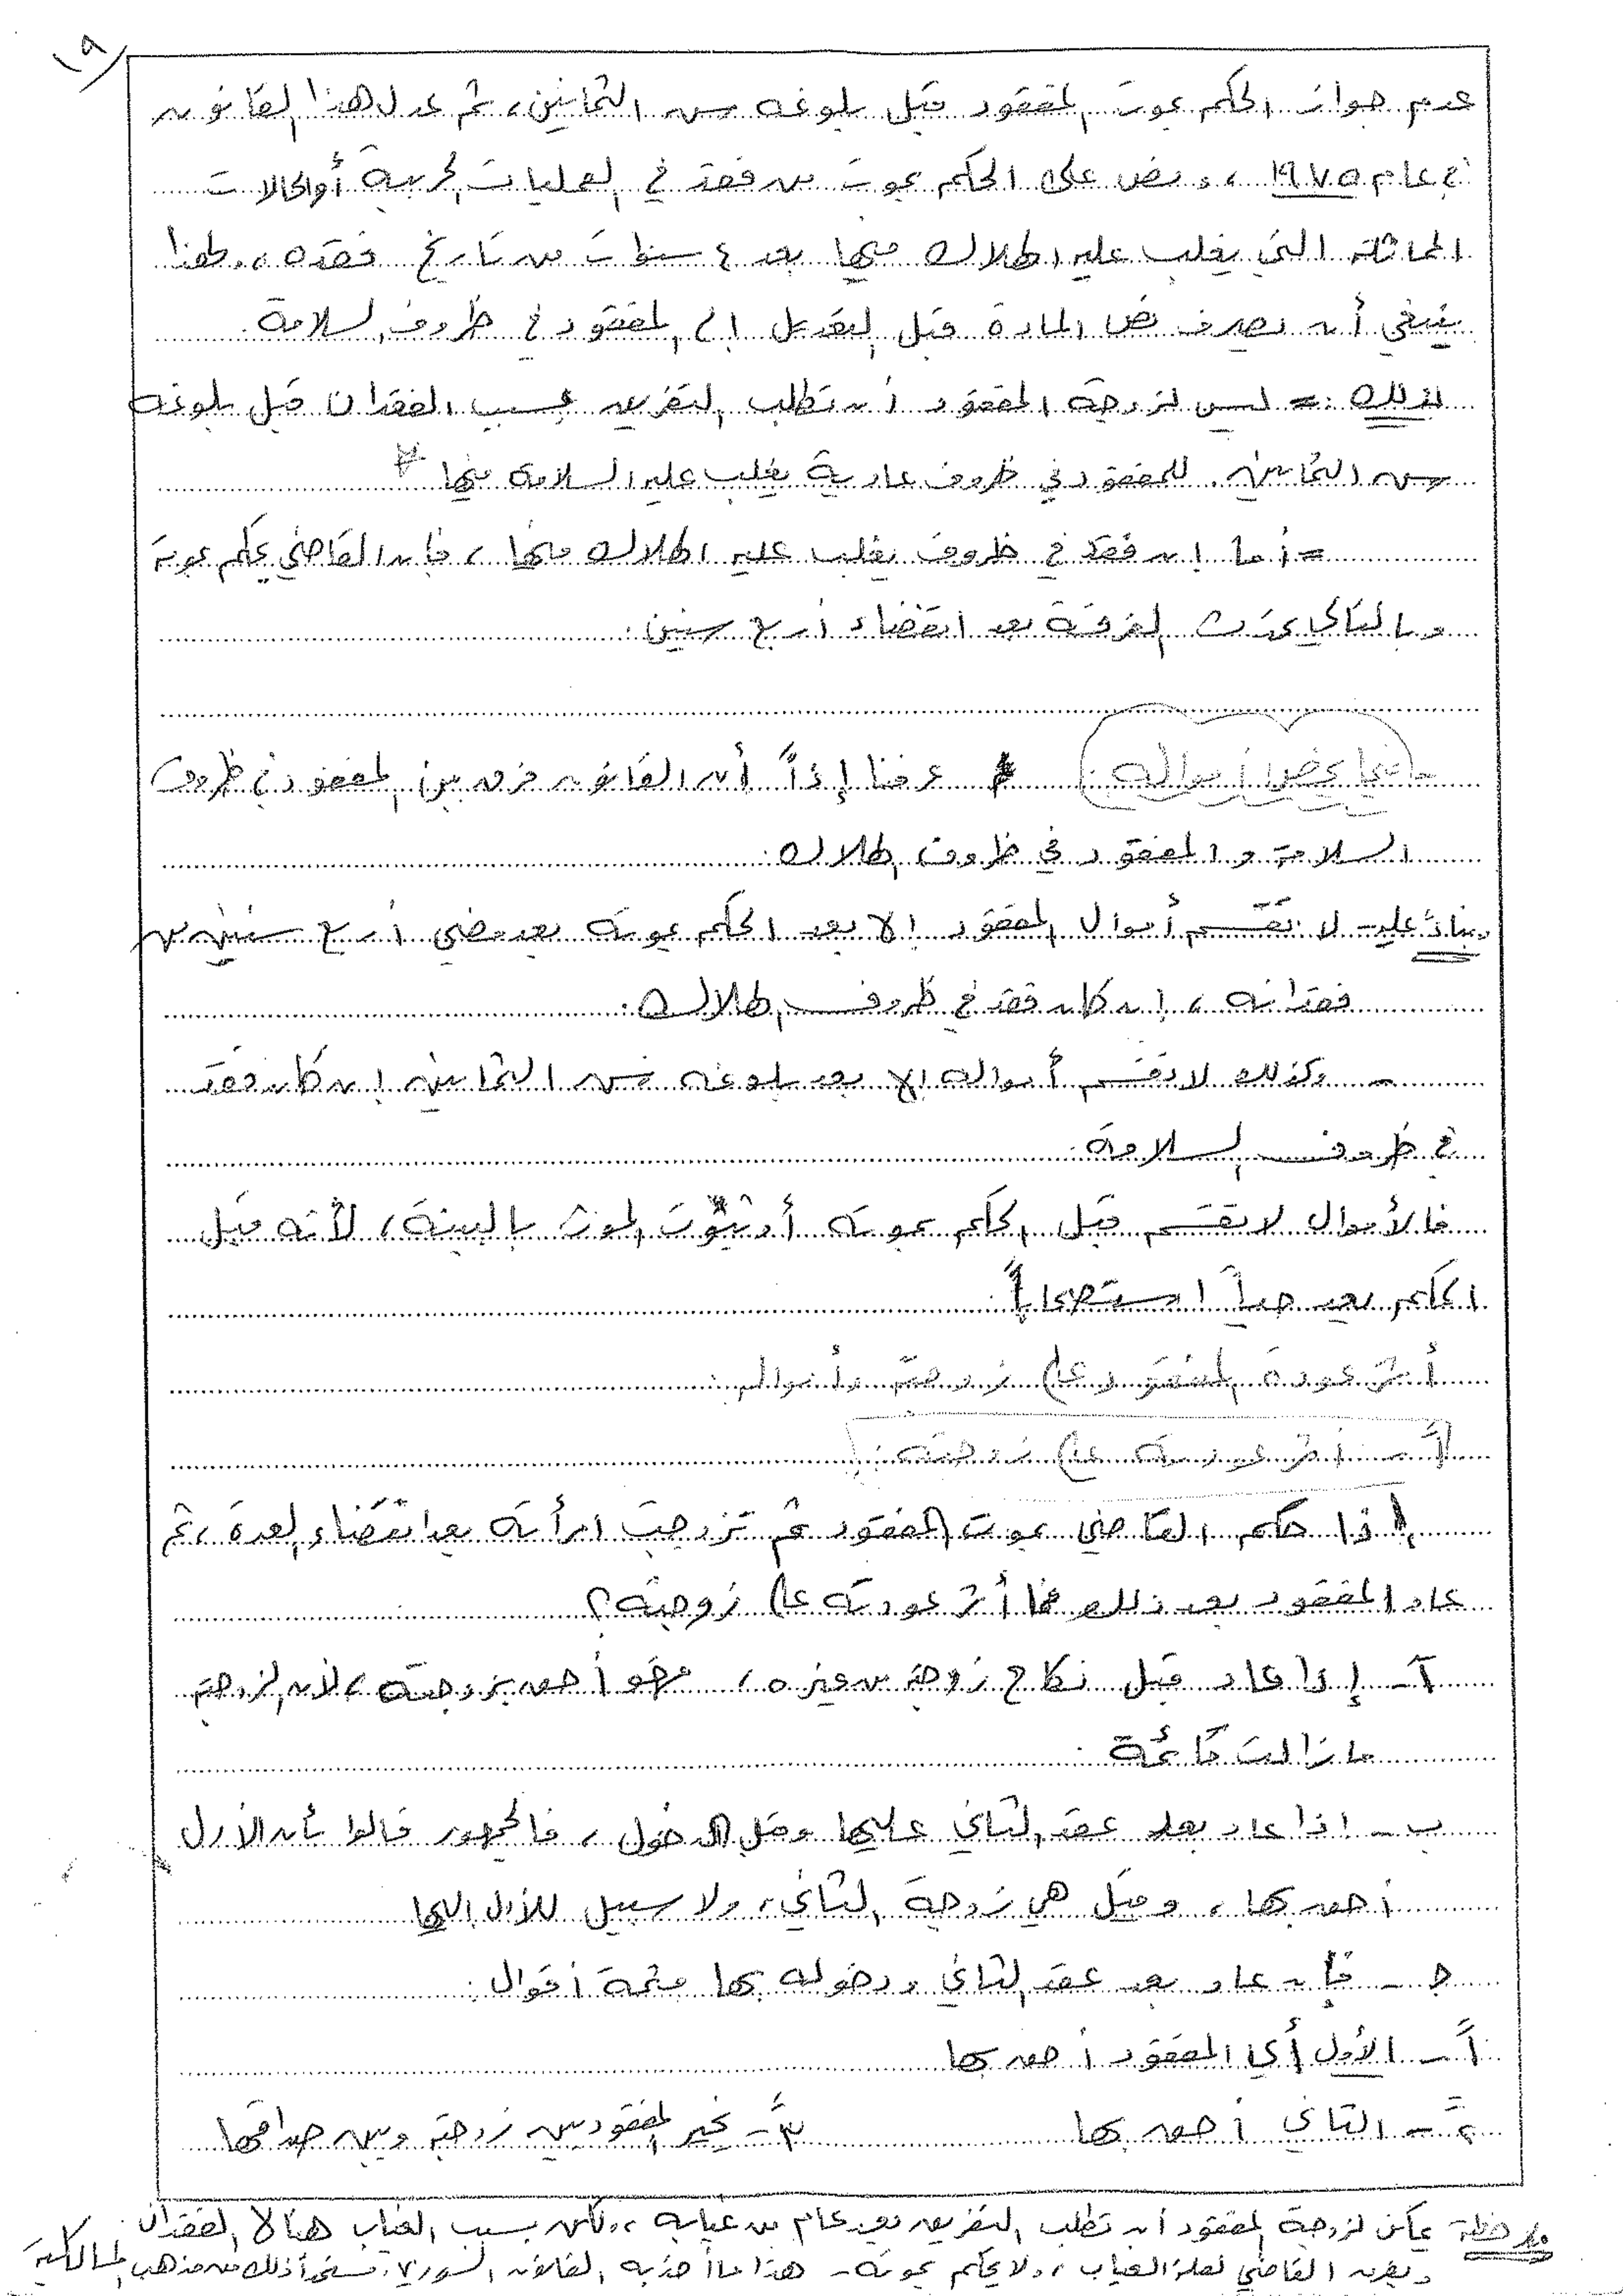 ١٩
عدم جواز الحكم بموت المفقود قبل بلوغه سن الثمانين، ثم عدل هذا القانون
في عام ١٩٧٥، ونص على الحكم بموت من فقد في العمليات الحربية أو الحالات
المماثلة التي يغلب عليه الهلاك فيها بعد ٤ سنوات من تاريخ فقده، لهذا
ينبغي أن نصرف نص المادة قبل التعديل إلى المفقود في ظروف السلامة.
لذلك: = ليس لزوجة المفقود أن تطلب التفريق بسبب الفقدان قبل بلوغه
سن الثمانين. للمفقود في ظروف عادية يغلب عليه السلامة فيها
= أما إن فقد في ظروف يغلب عليه الهلاك فيها، فإن القاضي يحكم بموته
وبالتالي تحدث الفرقة بعد انقضاء أربع سنين.
- فيما يخص أمواله: عرفنا إذاً أن القانون فرق بين المفقود في ظروف
السلامة والمفقود في ظروف الهلاك.
وبناءً عليه لا تقسم أموال المفقود إلا بعد الحكم بموته بعد مضي أربع سنين من
فقدانه، إن كان فقد في ظروف الهلاك.
- وكذلك لا تقسم أمواله إلا بعد بلوغه سن الثمانين إن كان فقد
في ظروف السلامة.
فالأموال لا تقسم قبل الحكم بموته أو ثبوت الموت بالبينة، لأنه قبل
الحكم يعد حياً استصحاباً.
أثر عودة المفقود على زوجته وأمواله:
أً - أثر عودته على زوجته:
إذا حكم القاضي بموت المفقود ثم تزوجت امرأته بعد انقضاء العدة، ثم
عاد المفقود بعد ذلك فما أثر عودته على زوجته؟
آ - إذا عاد قبل نكاح زوجته من غيره، فهو أحق بزوجته، لأن الزوجية
ما زالت قائمة.
ب - إذا عاد بعد عقد الثاني عليها وقبل الدخول، فالجمهور قالوا بأن الأول
أحق بها، وقيل هي زوجة الثاني، ولا سبيل للأول إليها
ج - فإن عاد بعد عقد الثاني ودخوله بها فثمة أقوال:
اً - الأول أي المفقود أحق بها
٢ً - الثاني أحق بها ٣ً - يخير المفقود بين زوجته وبين صداقها
ملاحظة يمكن لزوجة المفقود أن تطلب التفريق بعد عام من غيابه، ولكن بسبب الغياب هنا لا الفقدان.
ويفرق القاضي لعلة الغياب، ولا يحكم بموته - هذا ما أخذ به القانون السوري، مستمداً ذلك من مذهب المالكية